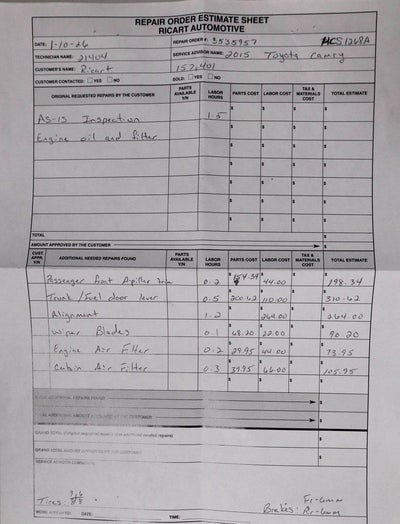 REPAIR ORDER ESTIMATE SHEET
RICART AUTOMOTIVE
DATE: 1-10-26 REPAIR ORDER #: 3535957 HCS1268A
TECHNICIAN NAME: 21404 SERVICE ADVISOR NAME: 2015 Toyota Camry
CUSTOMER'S NAME: Ricart 157,401
CUSTOMER CONTACTED: YES NO SOLD: YES NO
ORIGINAL REQUESTED REPAIRS BY THE CUSTOMER PARTS AVAILABLE Y/N LABOR HOURS PARTS COST LABOR COST TAX & MATERIALS COST TOTAL ESTIMATE
AS-IS Inspection 1.5 $ $ $ $
Engine oil and filter $ $ $ $
TOTAL
AMOUNT APPROVED BY THE CUSTOMER $
CUST. APPR. Y/N ADDITIONAL NEEDED REPAIRS FOUND PARTS AVAILABLE Y/N LABOR HOURS PARTS COST LABOR COST TAX & MATERIALS COST TOTAL ESTIMATE
Passenger front Apiller trim 0.2 $ 154.34 $ 44.00 $ $ 198.34
Trunk/Fuel door lever 0.5 $ 200.62 $ 110.00 $ $ 310.62
Alignment 1.2 $ $ 264.00 $ $ 264.00
Wiper Blades 0.1 $ 68.20 $ 22.00 $ $ 90.20
Engine Air Filter 0.2 $ 29.95 $ 44.00 $ $ 73.95
Cabin Air Filter 0.3 $ 39.95 $ 66.00 $ $ 105.95
TOTAL ADDITIONAL REPAIRS FOUND $
TOTAL ADDITIONAL AMOUNT BY THE CUSTOMER $
GRAND TOTAL $
GRAND TOTAL AMOUNT BY THE CUSTOMER $
SERVICE ADVISOR COMMENTS:
Fr-6mm
Tires: Brakes: Rr-6mm
DATE: TIME: